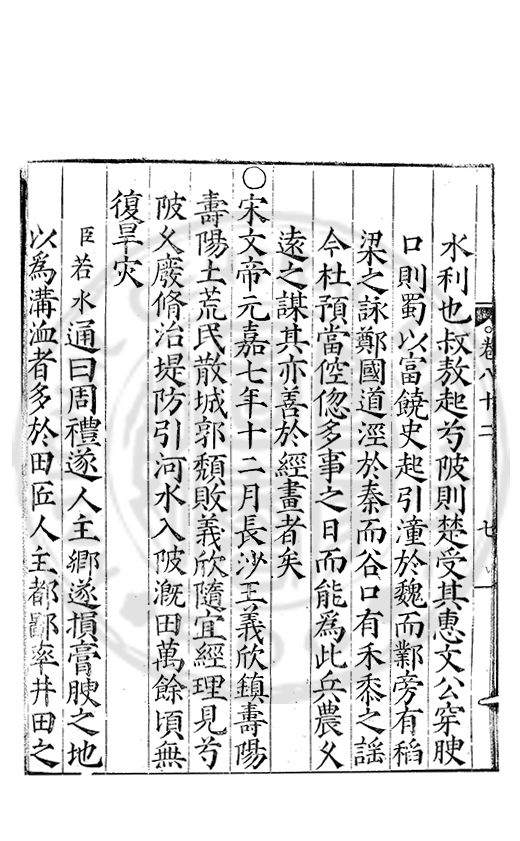 水利也叔敖起芍陂則楚受其惠文公穿腴
口則蜀以富饒史起引潼於魏而鄴旁有稻
梁之詠鄭國道涇於秦而谷口有禾黍之謡
今杜預當倥偬多事之日而能為此兵農乆
逺之謀其亦善於經畫者矣
○宋文帝元嘉七年十二月長沙王義欣鎮壽陽
壽陽土荒民散城郭頽敗義欣隨宜經理見芍
陂乆廢脩治堤防引河水入陂漑田萬餘頃無
復旱灾
臣若水通曰周禮遂人主郷遂損膏腴之地
以為溝洫者多於田匠人主都鄙率井田之
卷八十二
七